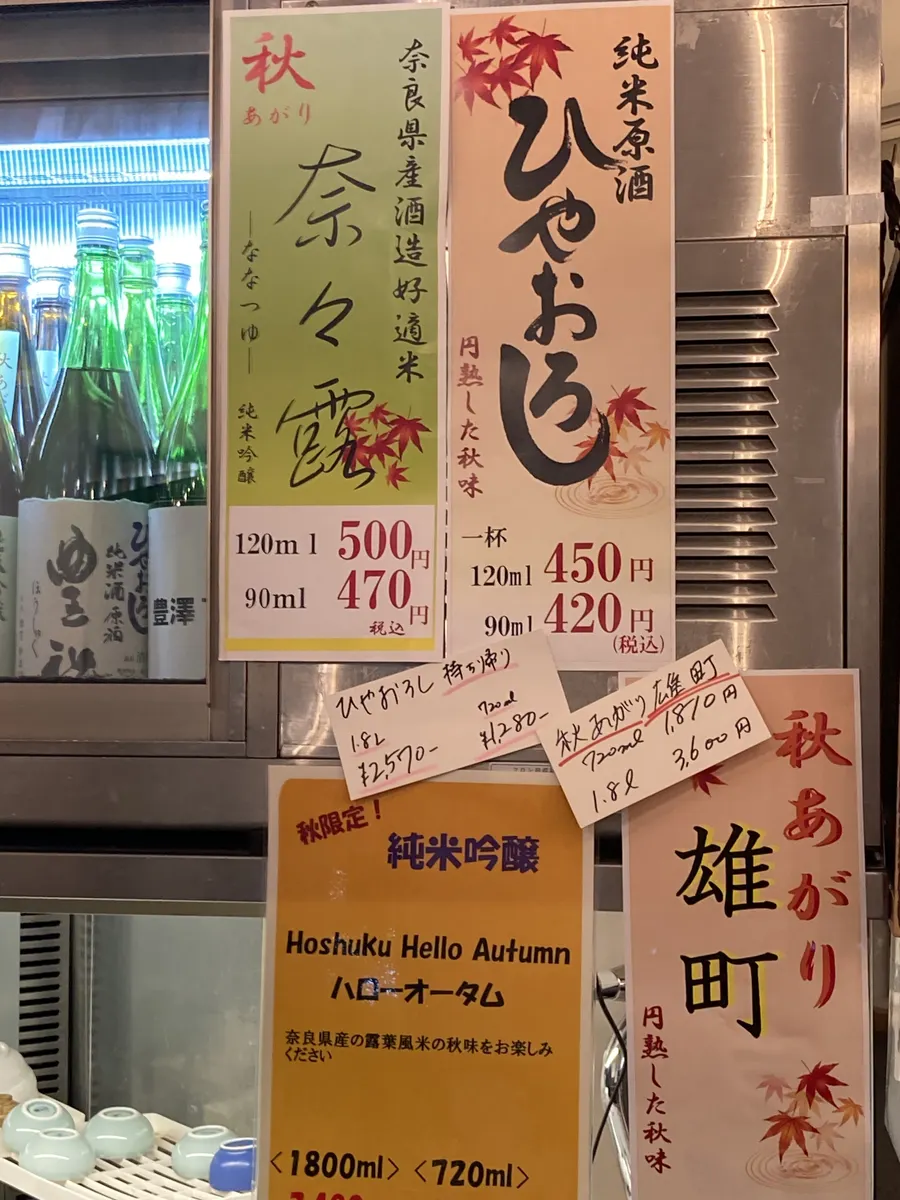 秋
あがり
奈良県産酒造好適米
奈々露
―ななつゆ―
純米吟醸
120ml 500円
90ml 470円
税込
純米原酒
ひやおろし
円熟した秋味
一杯
120ml 450円
90ml 420円
(税込)
ひやおろし 持ち帰り
1.8L 720ml
¥2,570- ¥1,280-
秋あがり 雄町
720ml 1,870円
1.8l 3,600円
秋限定!
純米吟醸
Hoshuku Hello Autumn
ハローオータム
奈良県産の露葉風米の秋味をお楽しみ
ください
<1800ml> <720ml>
秋あがり
雄町
円熟した秋味
ひやおろし
純米酒原酒
ほうしゅく
豊澤